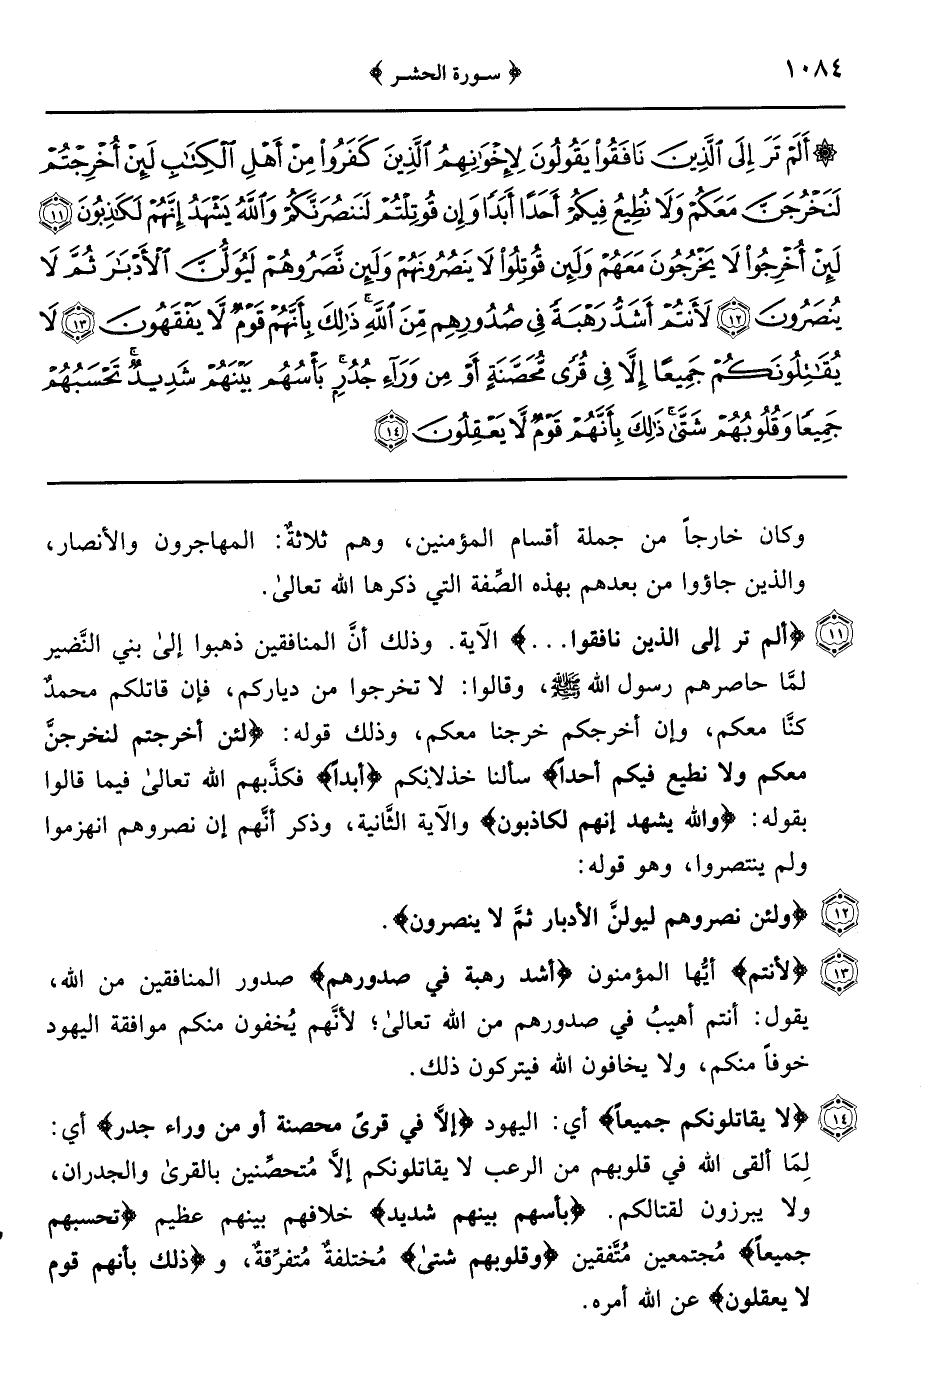 ١٠٨٤
﴿ سورة الحشر ﴾
۞ أَلَمْ تَرَ إِلَى ٱلَّذِينَ نَافَقُوا۟ يَقُولُونَ لِإِخْوَٰنِهِمُ ٱلَّذِينَ كَفَرُوا۟ مِنْ أَهْلِ ٱلْكِتَٰبِ لَئِنْ أُخْرِجْتُمْ
لَنَخْرُجَنَّ مَعَكُمْ وَلَا نُطِيعُ فِيكُمْ أَحَدًا أَبَدًا وَإِن قُوتِلْتُمْ لَنَنصُرَنَّكُمْ وَٱللَّهُ يَشْهَدُ إِنَّهُمْ لَكَٰذِبُونَ ١١
لَئِنْ أُخْرِجُوا۟ لَا يَخْرُجُونَ مَعَهُمْ وَلَئِن قُوتِلُوا۟ لَا يَنصُرُونَهُمْ وَلَئِن نَّصَرُوهُمْ لَيُوَلُّنَّ ٱلْأَدْبَٰرَ ثُمَّ لَا
يُنصَرُونَ ١٢ لَأَنتُمْ أَشَدُّ رَهْبَةً فِى صُدُورِهِم مِّنَ ٱللَّهِ ۚ ذَٰلِكَ بِأَنَّهُمْ قَوْمٌ لَّا يَفْقَهُونَ ١٣ لَا
يُقَٰتِلُونَكُمْ جَمِيعًا إِلَّا فِى قُرًى مُّحَصَّنَةٍ أَوْ مِن وَرَآءِ جُدُرٍۭ ۚ بَأْسُهُم بَيْنَهُمْ شَدِيدٌ ۚ تَحْسَبُهُمْ
جَمِيعًا وَقُلُوبُهُمْ شَتَّىٰ ۚ ذَٰلِكَ بِأَنَّهُمْ قَوْمٌ لَّا يَعْقِلُونَ ١٤
وكان خارجاً من جملة أقسام المؤمنين، وهم ثلاثةٌ: المهاجرون والأنصار،
والذين جاؤوا من بعدهم بهذه الصِّفة التي ذكرها الله تعالىٰ.
١١ ﴿ألم تر إلى الذين نافقوا...﴾ الآية. وذلك أنَّ المنافقين ذهبوا إلىٰ بني النَّضير
لمَّا حاصرهم رسول الله ﷺ، وقالوا: لا تخرجوا من دياركم، فإن قاتلكم محمدٌ
كنَّا معكم، وإن أخرجكم خرجنا معكم، وذلك قوله: ﴿لئن أخرجتم لنخرجنَّ
معكم ولا نطيع فيكم أحداً﴾ سألنا خذلانكم ﴿أبداً﴾ فكذَّبهم الله تعالىٰ فيما قالوا
بقوله: ﴿والله يشهد إنهم لكاذبون﴾ والآية الثَّانية، وذكر أنَّهم إن نصروهم انهزموا
ولم ينتصروا، وهو قوله:
١٢ ﴿ولئن نصروهم ليولنَّ الأدبار ثمَّ لا ينصرون﴾.
١٣ ﴿لأنتم﴾ أيُّها المؤمنون ﴿أشد رهبة في صدورهم﴾ صدور المنافقين من الله،
يقول: أنتم أهيبُ في صدورهم من الله تعالىٰ؛ لأنَّهم يُخفون منكم موافقة اليهود
خوفاً منكم، ولا يخافون الله فيتركون ذلك.
١٤ ﴿لا يقاتلونكم جميعاً﴾ أي: اليهود ﴿إلَّا في قرىً محصنة أو من وراء جدر﴾ أي:
لِمَا ألقى الله في قلوبهم من الرعب لا يقاتلونكم إلَّا مُتحصِّنين بالقرىٰ والجدران،
ولا يبرزون لقتالكم. ﴿بأسهم بينهم شديد﴾ خلافهم بينهم عظيم ﴿تحسبهم
جميعاً﴾ مُجتمعين مُتَّفقين ﴿وقلوبهم شتىٰ﴾ مُختلفةٌ مُتفرِّقةٌ، و ﴿ذلك بأنهم قوم
لا يعقلون﴾ عن الله أمره.